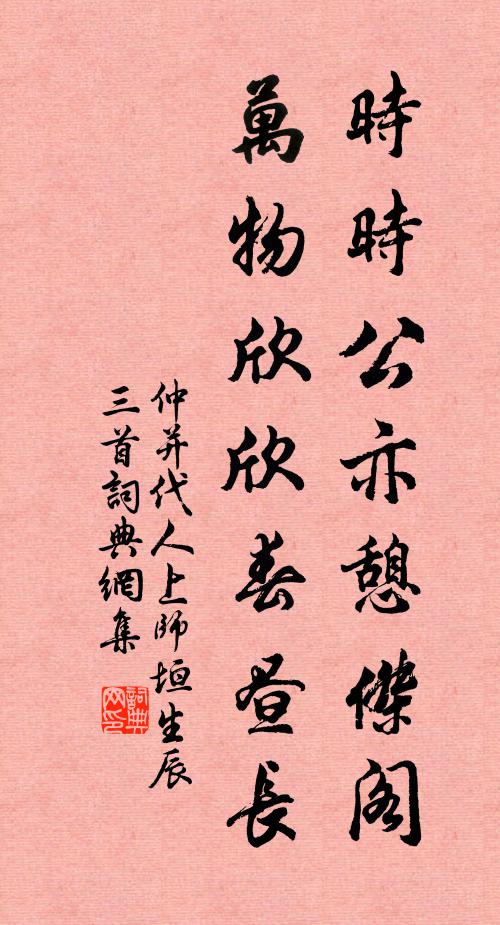 時時公亦憩傑閣
萬物欣欣春昼長
仲并代人上師垣生辰
三首詞典網集
詞典網印